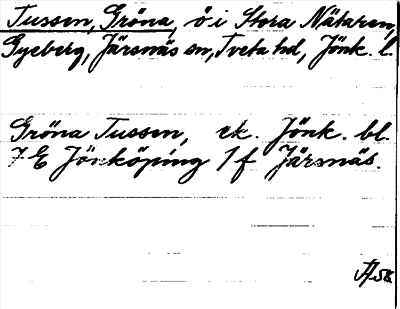 Tussen, Gröna, ö i Stora Nätaren,
Gyeberg, Järsnäs sn, Tveta hd, Jönk. l.
Gröna Tussen, ek. Jönk. bl.
7 E Jönköping 1 f Järsnäs.